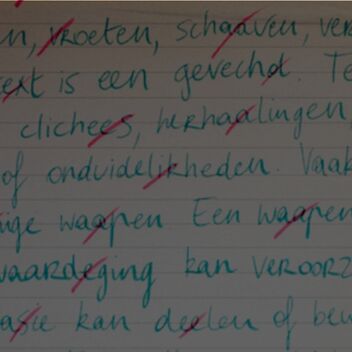 en, vroeten, schaaven, ver
text is een gevechd. Te
clichees, herhaalingen,
of onduidelikheden. Vaak
ige waapen Een waapen
vaardeging kan veroorz
asie kan deelen of bew